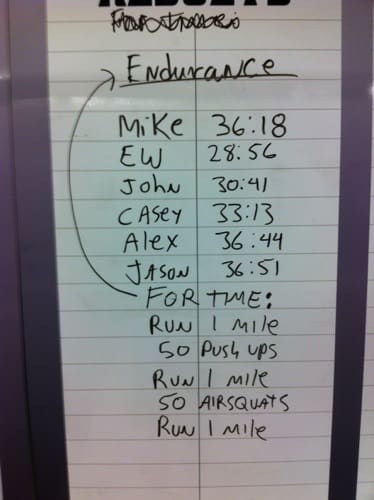 RESULTS
ENDURANCE
MiKe 36:18
EW 28:56
John 30:41
CASEY 33:13
Alex 36:44
JASON 36:51
FOR TIME:
RUN 1 mile
50 Push ups
RUN 1 mile
50 AIRSQUATS
RUN 1 mile